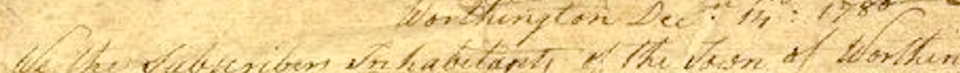 Worthington Decr. 14th: 1780
We the Subscribers Inhabitants of the Town of Worthin